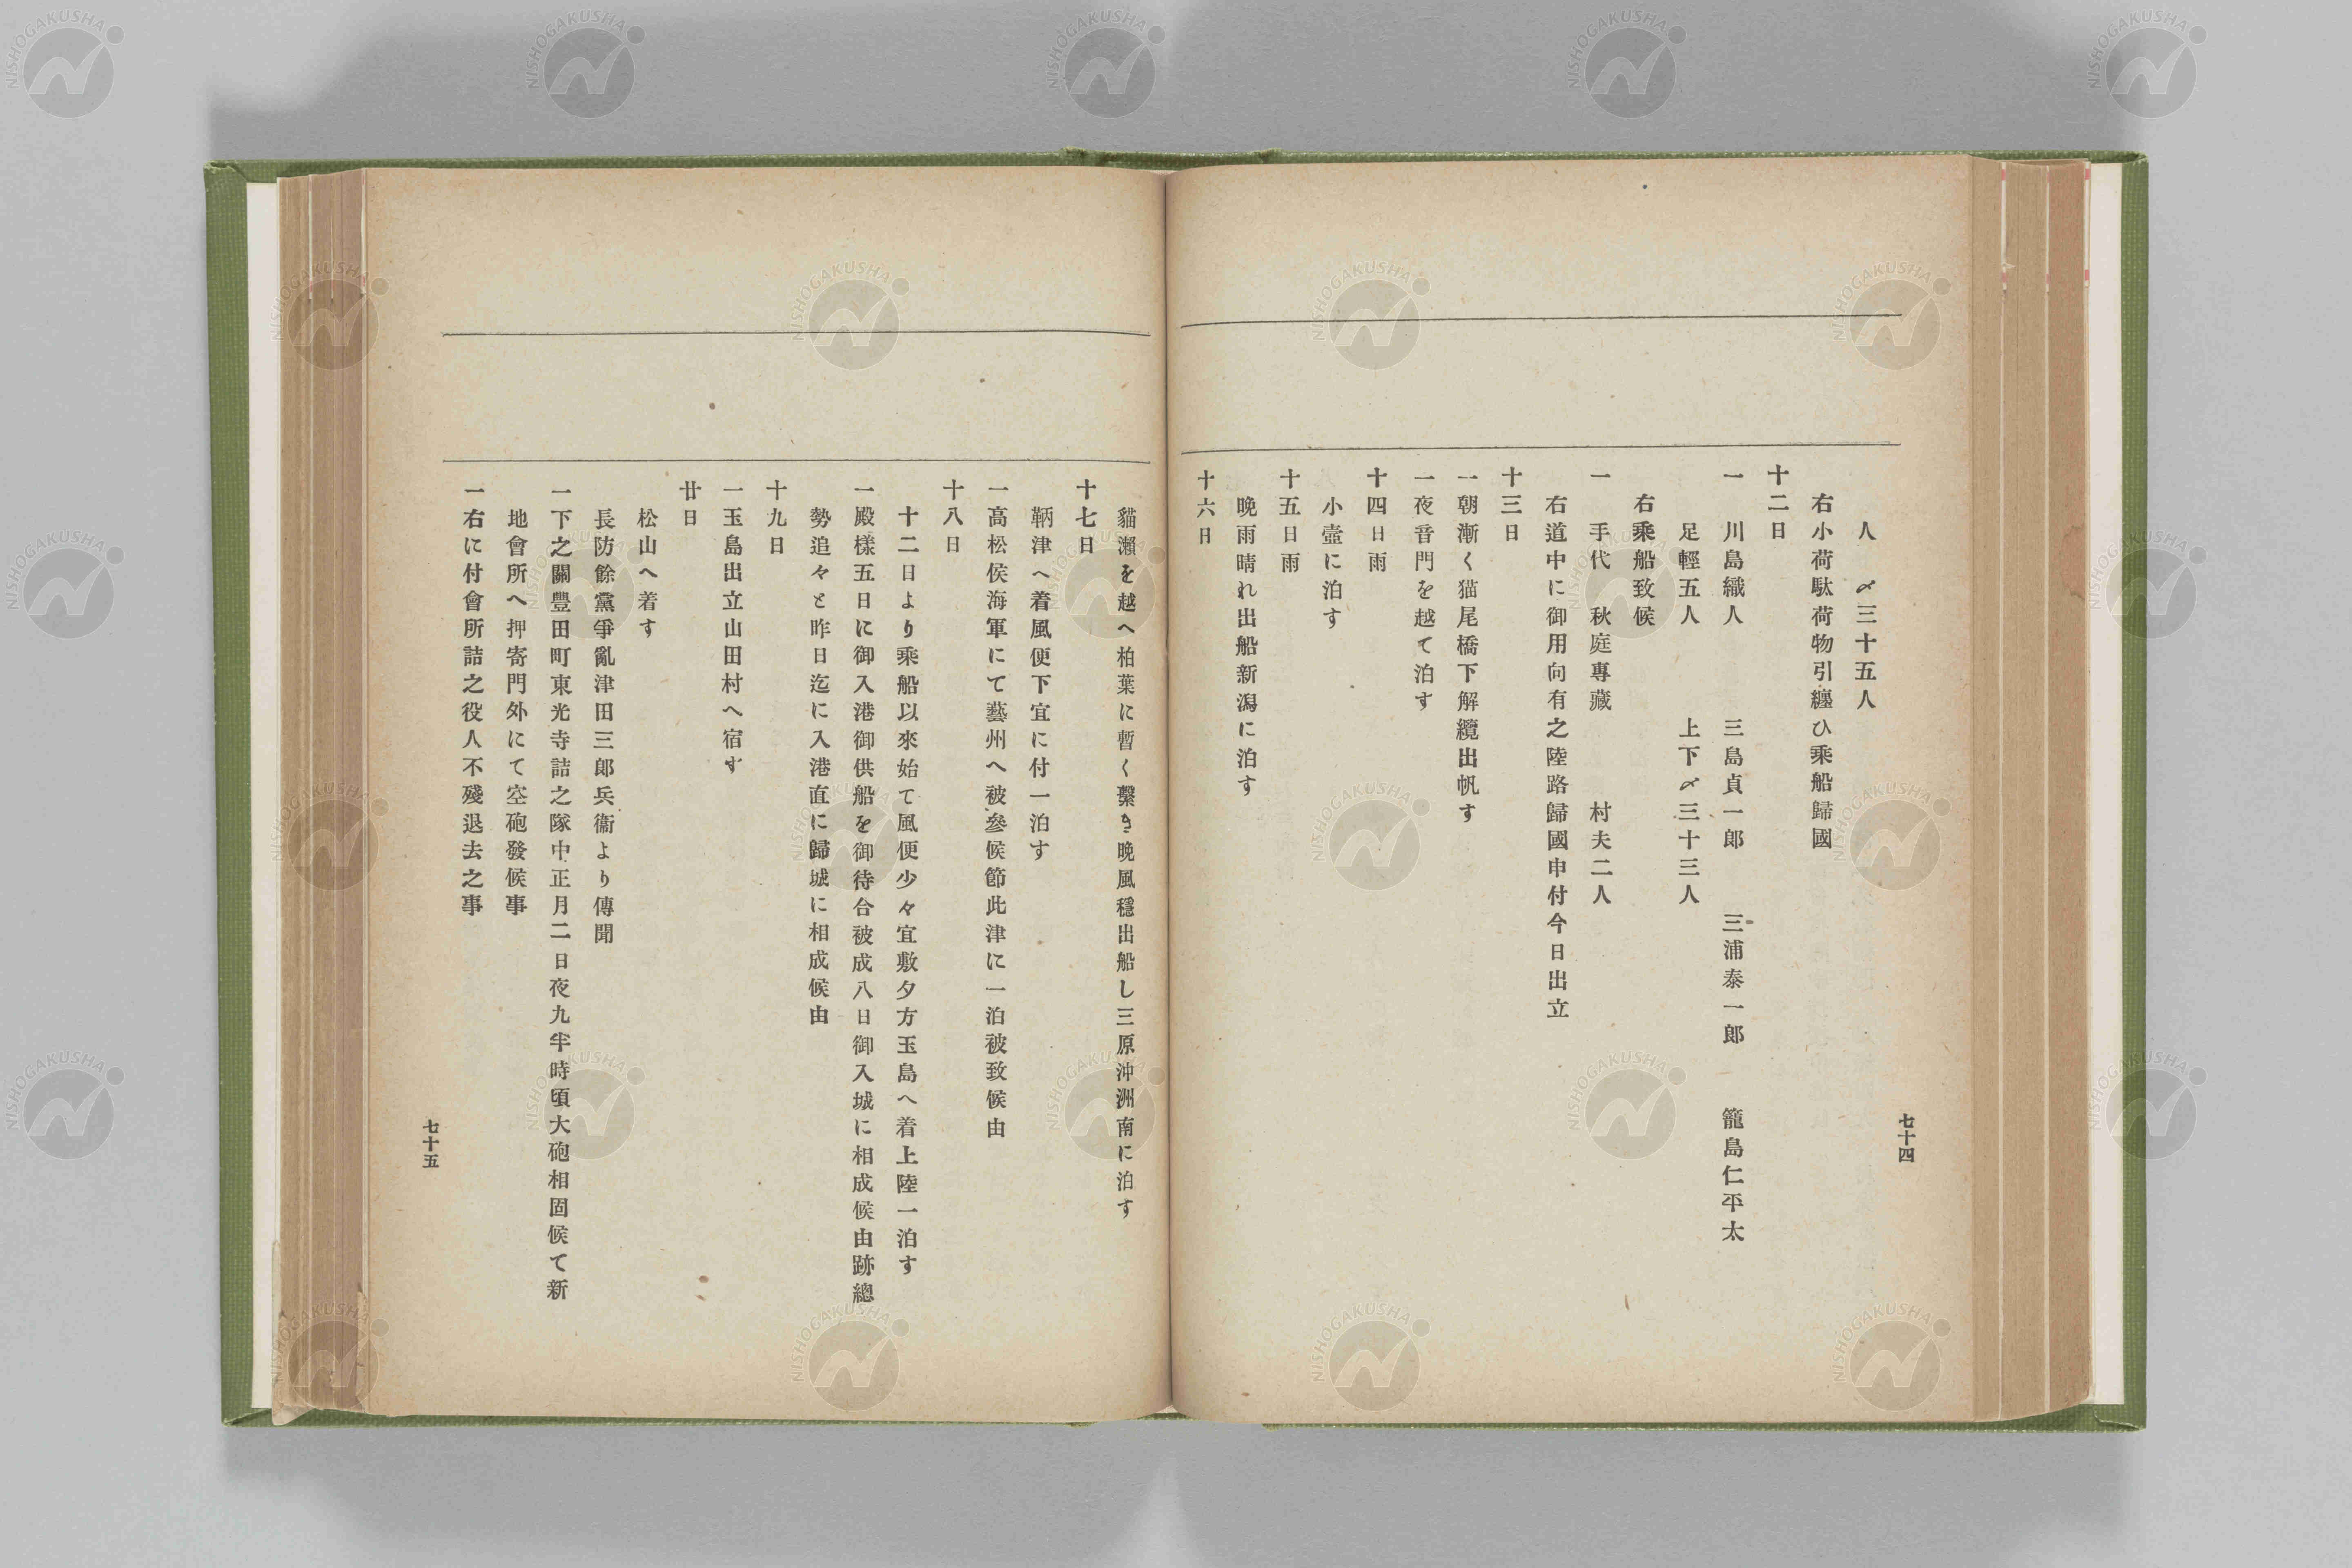 七十四
人　〆三十五人
右小荷駄荷物引纏ひ乘船歸國
十二日
一　川島織人　　三島貞一郎　　三浦泰一郎　　籠島仁平太
足輕五人　　上下〆三十三人
右乘船致候
一　手代　秋庭專藏　　村夫二人
右道中に御用向有之陸路歸國申付今日出立
十三日
一朝漸く猫尾橋下解纜出帆す
一夜音門を越て泊す
十四日雨
小壺に泊す
十五日雨
晩雨晴れ出船新潟に泊す
十六日
貓瀨を越へ柏葉に暫く繫き晩風穩出船し三原沖洲南に泊す
十七日
鞆津へ着風便下宜に付一泊す
一高松侯海軍にて藝州へ被參候節此津に一泊被致候由
十八日
十二日より乘船以來始て風便少々宜敷夕方玉島へ着上陸一泊す
一殿樣五日に御入港御供船を御待合被成八日御入城に相成候由跡總
勢追々と昨日迄に入港直に歸城に相成候由
十九日
一玉島出立山田村へ宿す
廿日
松山へ着す
長防餘黨爭亂津田三郎兵衞より傳聞
一下之關豐田町東光寺詰之隊中正月二日夜九半時頃大砲相固候て新
地會所へ押寄門外にて空砲發候事
一右に付會所詰之役人不殘退去之事
七十五
NISHOGAKUSHA